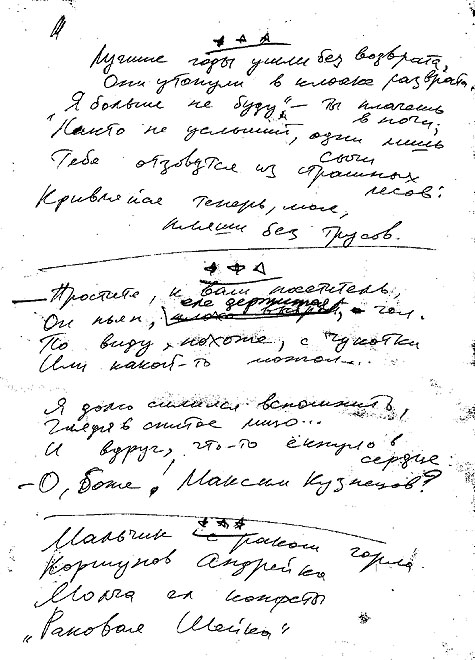 * * *
Лучшие годы ушли без возврата,
Они утонули в клоаке разврата.
"Я больше не буду" – ты плачешь
в ночи,
Никто не услышит, одни лишь
сычи
Тебе отзовутся из страшных
лесов:
Кривляйся теперь, мол,
пляши без трусов.
* * *
– Простите, к Вам посетитель,
Он пьян, еле держится, – гол.
По виду, похоже, с чукотки
Или какой-то монгол...
Я долго силился вспомнить,
Глядя в спитое лицо...
И вдруг, что-то ёкнуло в
сердце:
– О, Боже, Максим Кузнецов?
* * *
Мальчик с раком горла
Коршунов Андрейка
Молча ел конфеты
"Раковая Шейка"